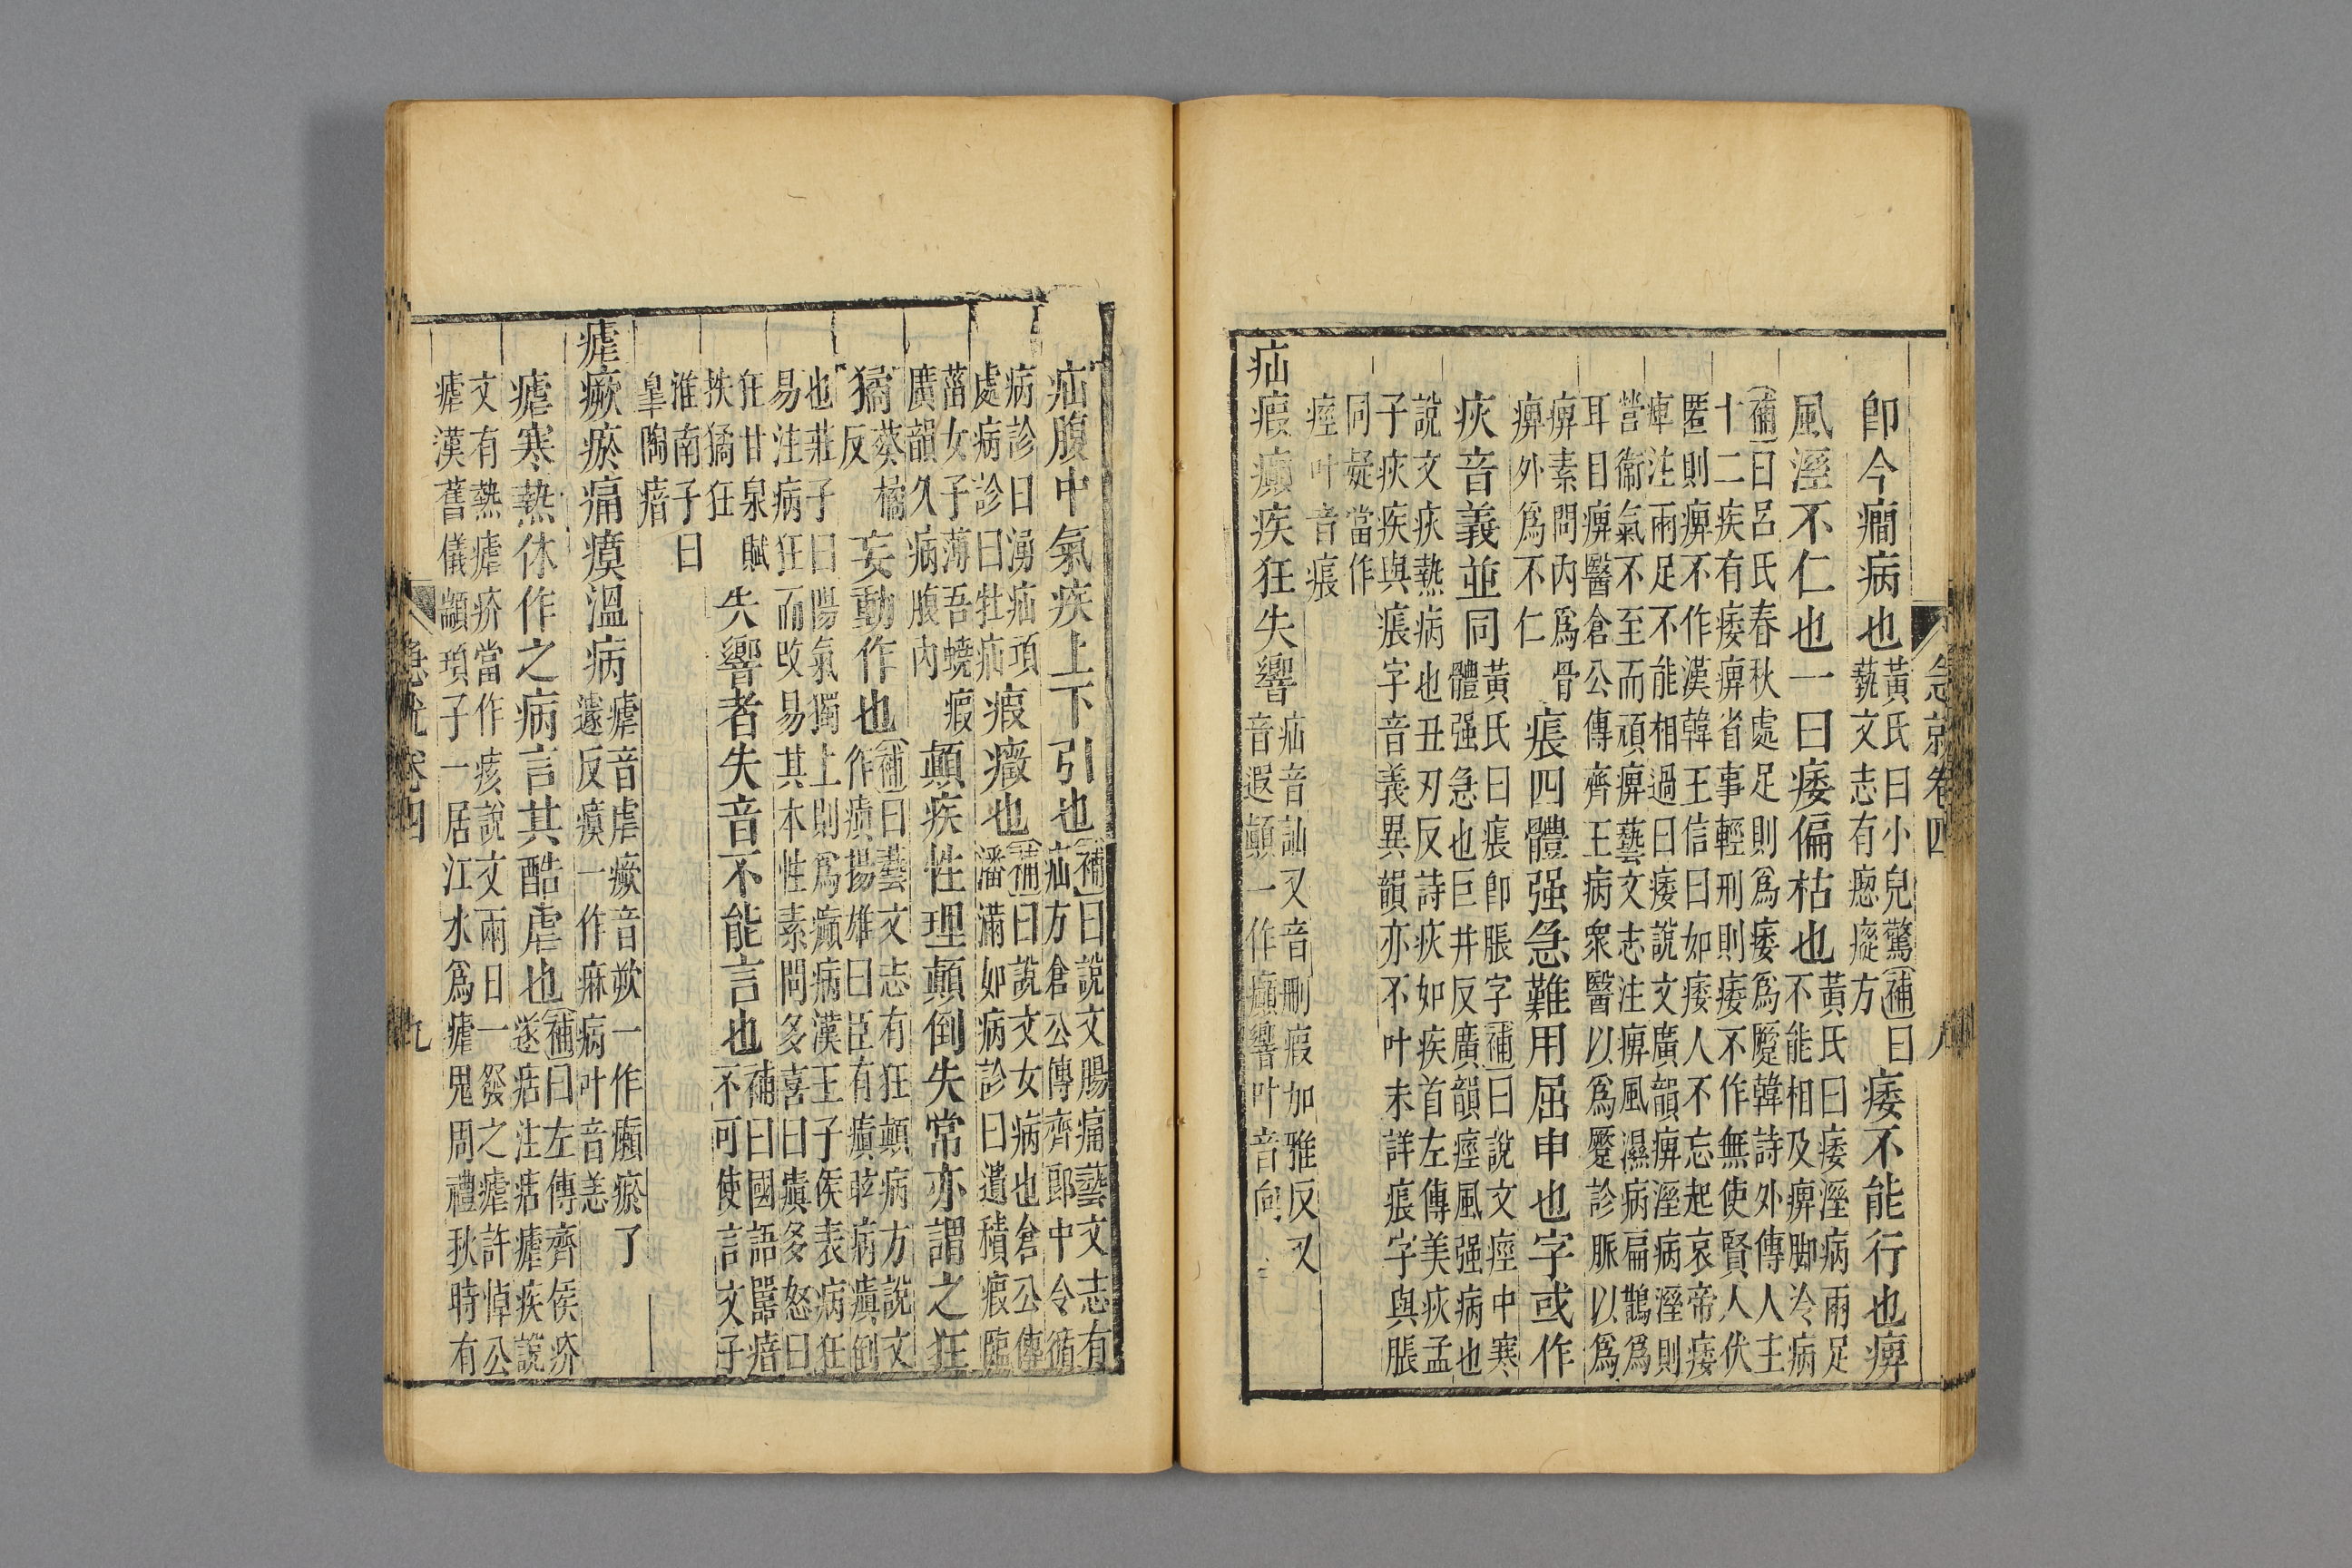 急就卷四
八
卽今癎病也
黃氏曰小兒驚
藝文志有瘛瘲方
補曰
痿不能行也痹
風溼不仁也一曰痿偏枯也
黃氏曰痿溼病兩足
不能相及痹脚冷病
補曰呂氏春秋處足則爲痿爲蹷韓詩外傳人主
十二疾有痿痹省事輕刑則痿不作無使賢人伏
匿則痹不作漢韓王信曰如痿人不忘起哀帝痿
痺注兩足不能相過曰痿說文廣韻痹溼病溼則
營衞氣不至而頑痹藝文志注痹風濕病扁鵲爲
耳目痹醫倉公傳齊王病衆醫以爲蹷診脈以爲
痹素問內爲骨
痹外爲不仁
痮四體强急難用屈申也字或作
疢音義並同
黃氏曰痮卽脹字補曰說文痙中寒
體强急也巨井反廣韻痙風强病也
說文疢熱病也丑刃反詩疢如疾首左傳美疢孟
子疢疾與痮字音義異韻亦不叶未詳痮字與脹
同疑當作
痙叶音痮
疝瘕癲疾狂失響
疝音訕又音刪瘕加雅反又
音遐顚一作癲響叶音向
疝腹中氣疾上下引也
補曰說文腸痛藝文志有
疝方倉公傳齊郞中令循
病診曰湧疝項
處病診曰牡疝
瘕癥也
補曰說文女病也倉公傳
潘滿如病診曰遺積瘕臨
菑女子薄吾蟯瘕
廣韻久病腹內
顚疾性理顚倒失常亦謂之狂
獝
葵橘
反
妄動作也
補曰藝文志有狂顚病方說文
作瘨揚雄曰臣有瘨眩病瘨倒
也莊子曰陽氣獨上則爲癲病漢王子侯表病狂
易注病狂而改易其本性素問多喜曰瘨多怒曰
狂甘泉賦
抶獝狂
失響者失音不能言也
補曰國語嚚瘖
不可使言文子
淮南子曰
皐陶瘖
瘧瘚瘀痛瘼溫病
瘧音虐瘚音欮一作癲瘀了
遽反瘼一作麻病叶音恙
瘧寒熱休作之病言其酷虐也
補曰左傳齊侯疥
遂痁注痁瘧疾說
文有熱瘧疥當作痎說文兩日一發之瘧許悼公
瘧漢舊儀顓頊子一居江水爲瘧鬼周禮秋時有
急就卷四
九